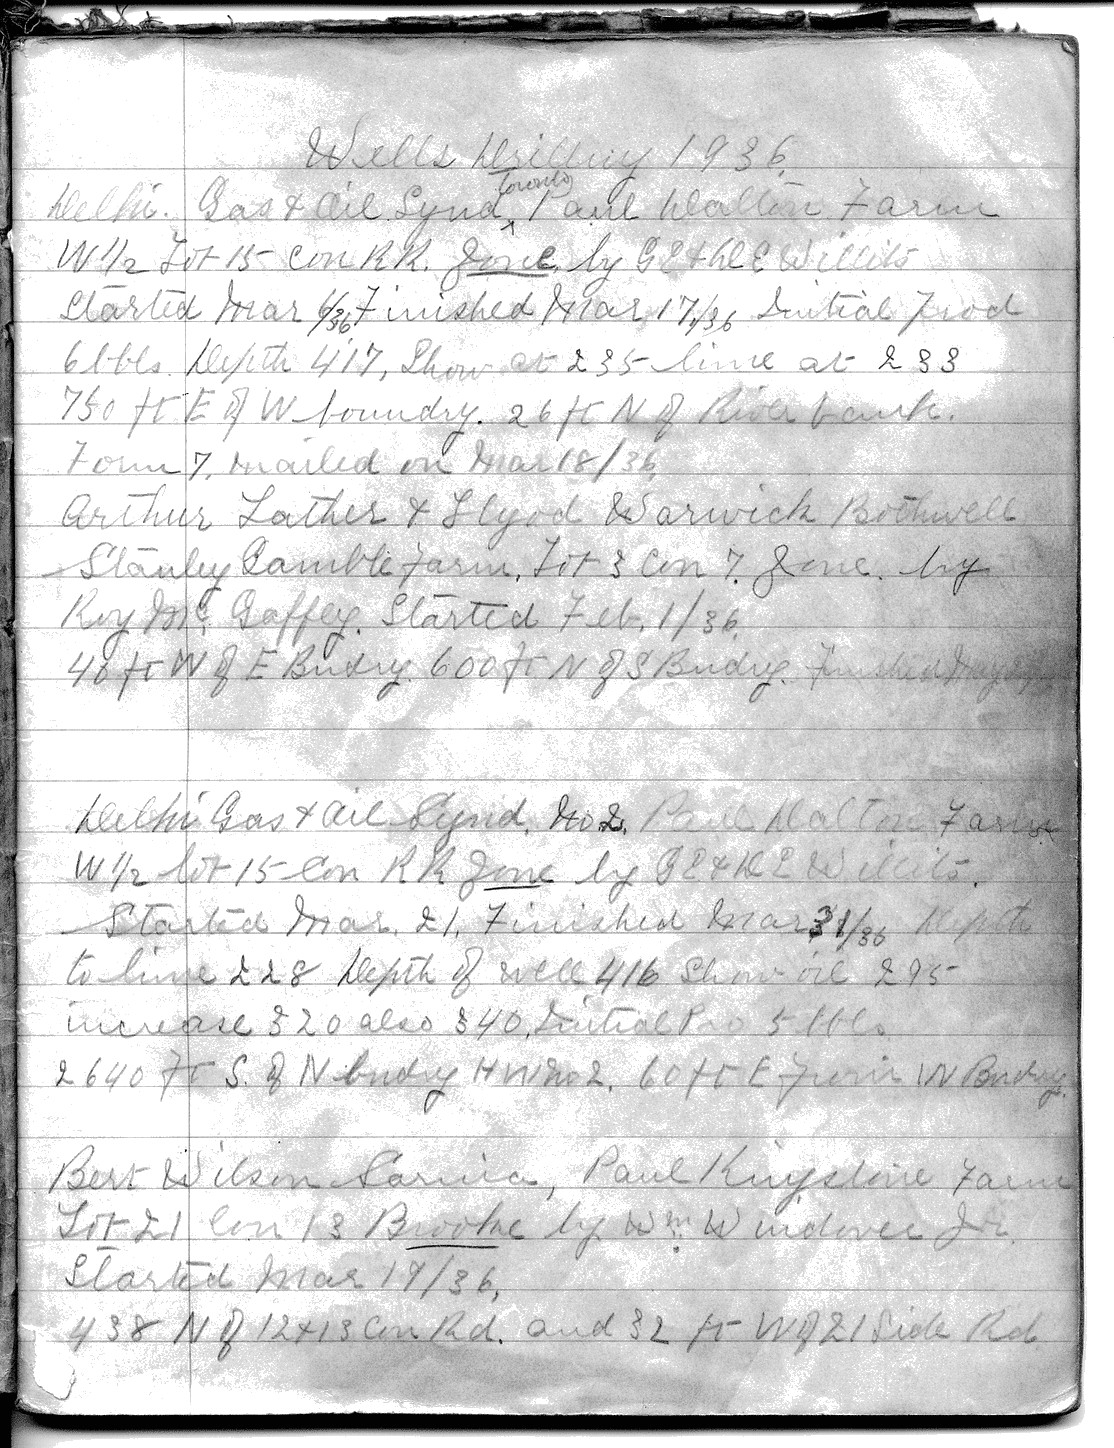 Wells Drilling 1936.
Delhi. Gas & Oil Synd, Toronto Paul Dalton Farm
W 1/2 Lot 15 Con R.R. Zone by G E & D E Willits
Started Mar 6/36 Finished Mar, 17,/36 Initial Prod
6 bbls. Depth 417, Show at 235 lime at 233
750 ft E of W boundry. 26 ft N of River bank.
Form 7. mailed on Mar 18/36
Arthur Lather & Llyod Warwick Bothwell
Stanley Gamble Farm, Lot 3 Con 7. Zone. by
Roy Mc. Gaffey. Started Feb, 1/36.
46 ft W of E Bndry. 600 ft N of S Bndry. Finished May
Delhi Gas & Oil Synd, No 2. Paul Dalton Farm
W 1/2 lot 15 Con R R Zone by G E & D E Willits.
Started Mar. 21, Finished Mar 31/36 Depth
to lime 228 Depth of well 416 Show oil 295
increase 320 also 340, Initial Pro 5 bbls
2640 ft S. of N bndry H W No 2, 60 ft E from W Bndry.
Bert Wilson Sarnia, Paul Kingstone Farm
Lot 21 Con 13 Brooke by Wm. Windover Jr.
Started Mar 19/36,
438 N of 12 & 13 Con Rd. and 32 ft W of 21 Side Rd